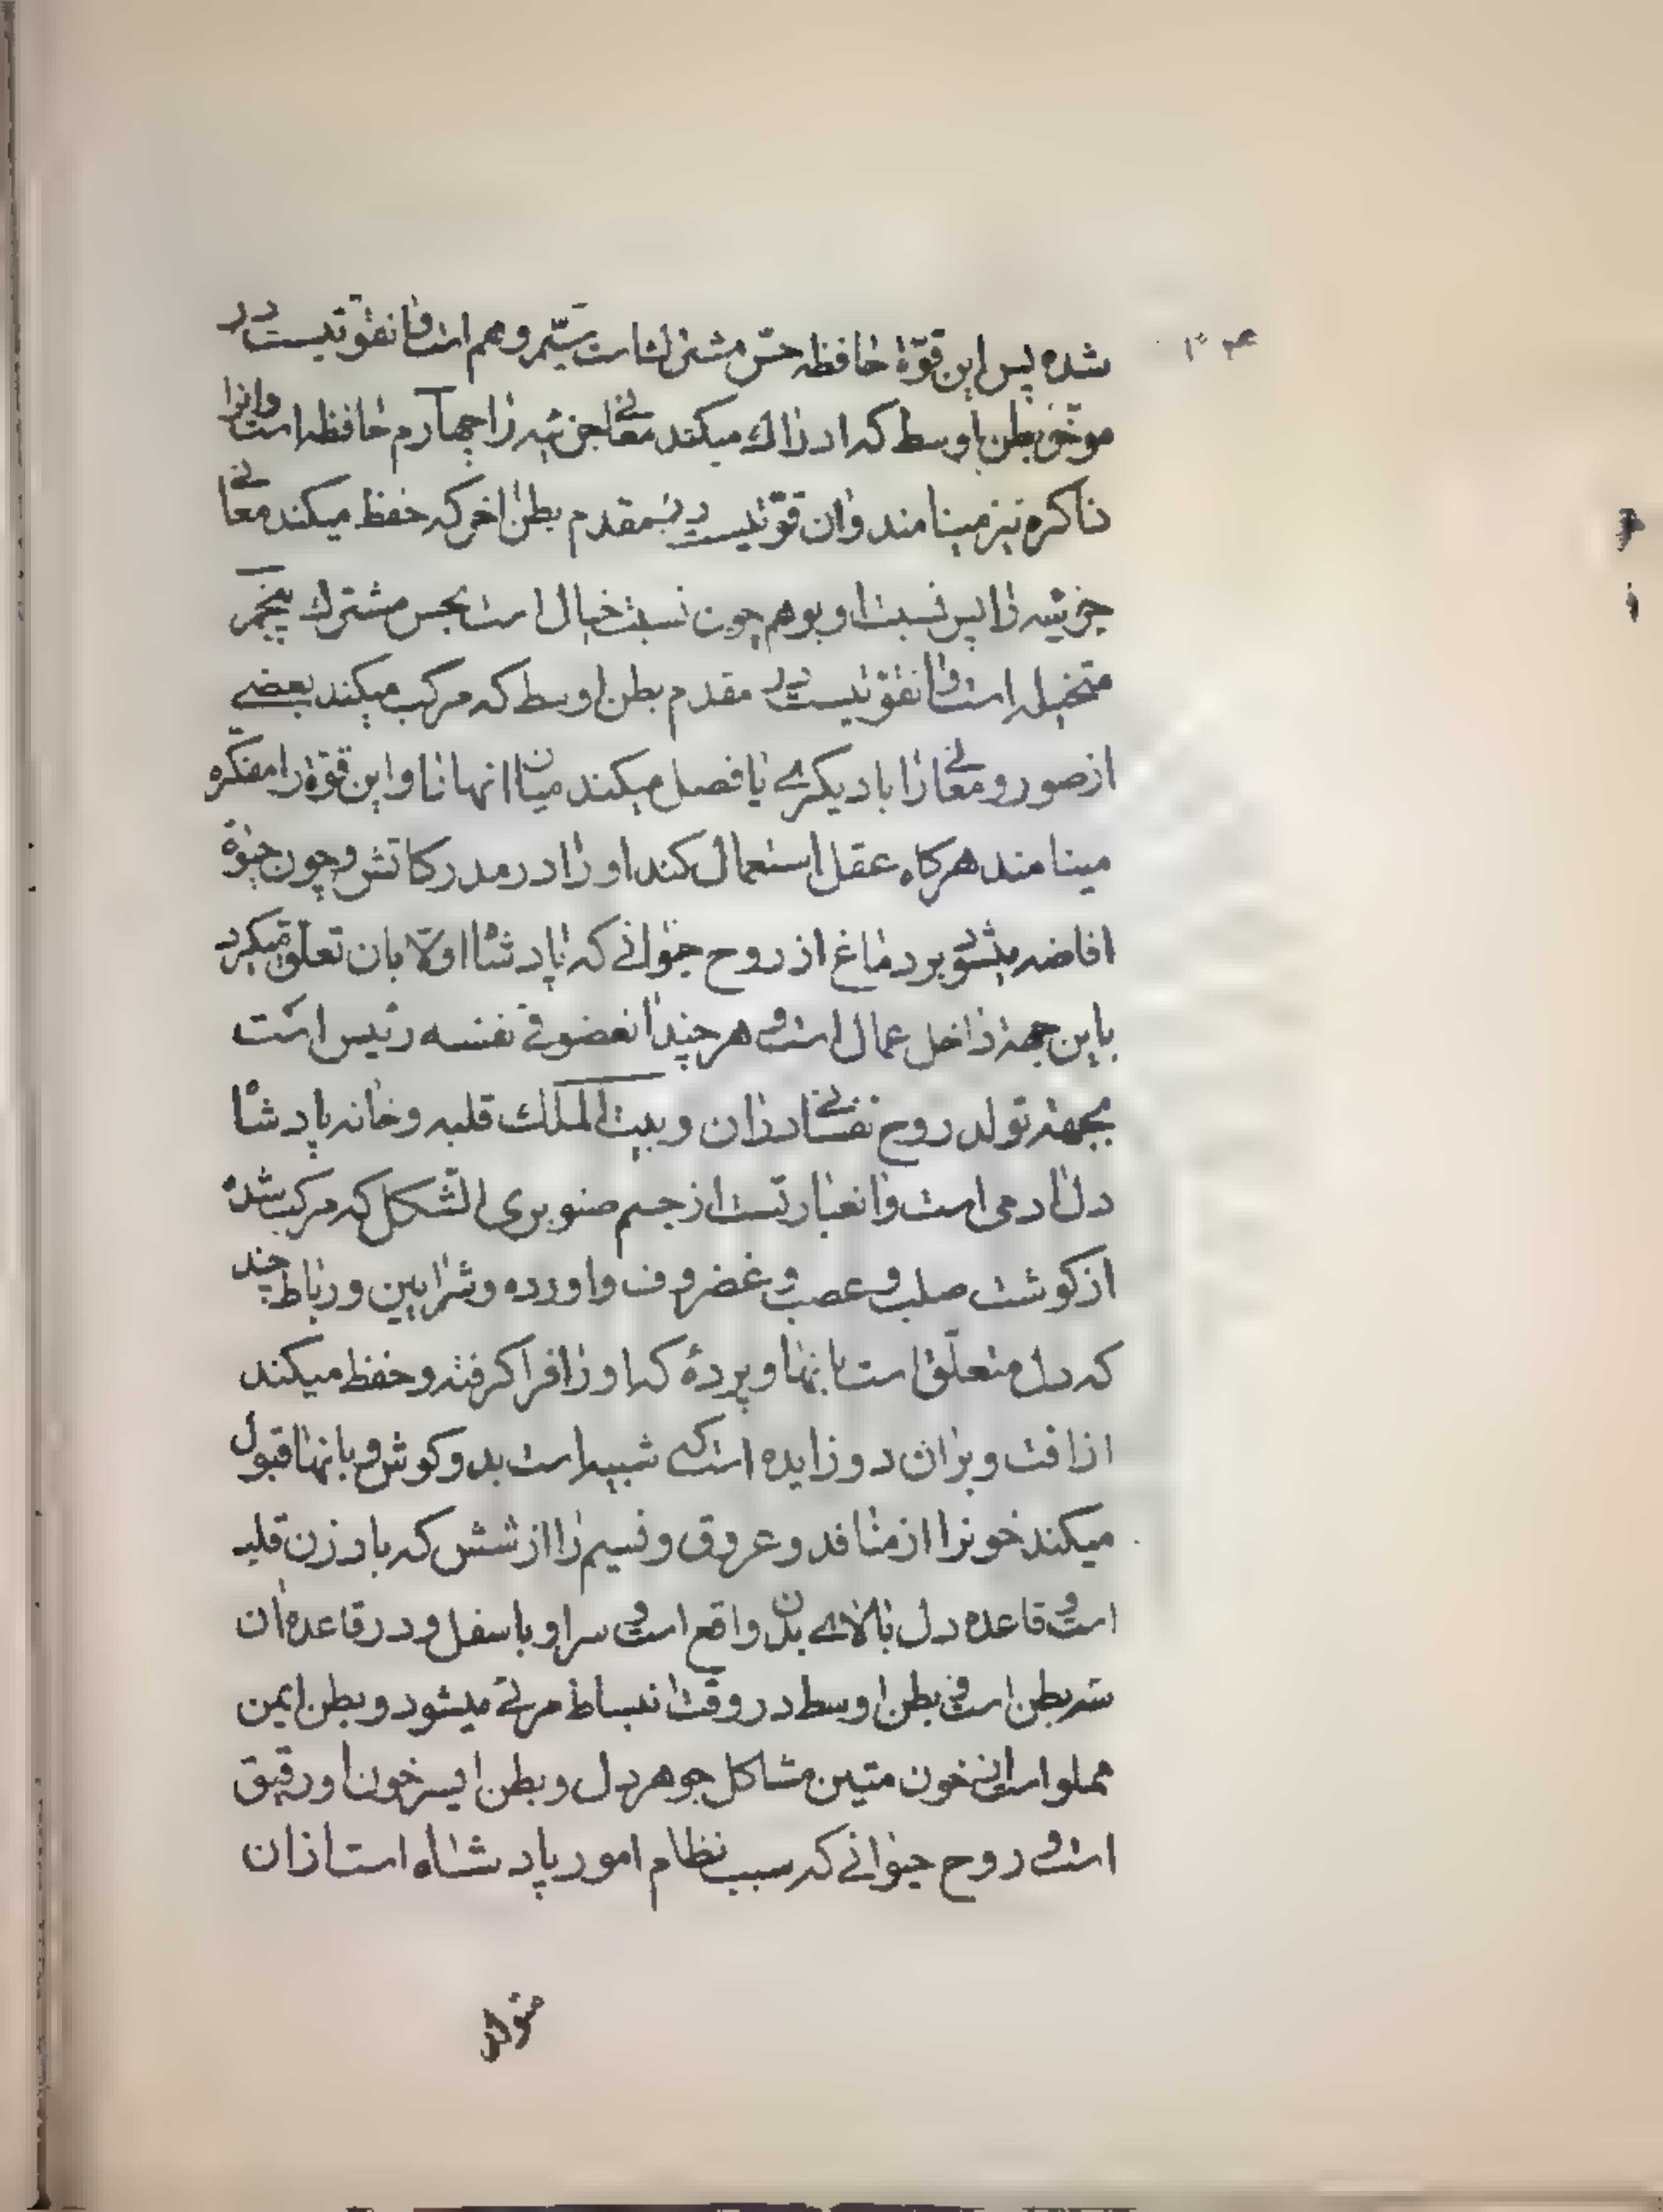 شده پس این قوّة حافظه حسّ مشترکست سیّم وهم است و آنقوتیست در
موخّر بطن اوسط که ادراك میکند معانی جزئیه را چهارم حافظه است و انرا
ذاکره نیز مینامند و ان قوّتیست در مقدم بطن اخر که حفظ میکند معانی
جزئیه را پس نسبت او بوهم چون نسبت خیال است بحس مشترك پنجم
متخیله است و انقوتیست در مقدم بطن اوسط که مرکب میکند بعضی
از صور و معانی را با دیکری یا فصل میکند میان انها تا و این قوّة را مفکره
مینامند هرکاه عقل استعمال کند او را در مدرکاتش و چون حیوة
افاضه میشود بر دماغ از روح حیوانی که پادشاه اولا بان تعلّق میکیرد
باین جهة داخل عمال است و هر چند انعضو فی نفسه رئیس است
بجهة تولد روح نفسانی در ان و بیت الملك قلبه و خانه پادشاه
دل ادمی است و انعبارتست از جسم صنوبری الشکل که مرکب شده
از کوشت صلب و عصب و غضروف و اورده و شرایین و رباط چند
که دل متعلّق است بانها و پردۀ که او را فرا کرفته و حفظ میکند
از افت و بران دو زایده است که شبیه است بدو کوش و بانها قبول
میکند خونرا از منافد و عروق و نسیم را از شش که باد زن قلبـ
است و قاعده دل ببالای بدن واقع است و سر او باسفل و در قاعده ان
سه بطن است و بطن اوسط در وقت انبساط مرئی میشود و بطن ایمن
مملو است از خون متین مشاکل جوهر دل و بطن ایسر خون او رقیق
است و روح حیوانی که سبب نظام امور پادشاه است از ان
متولد